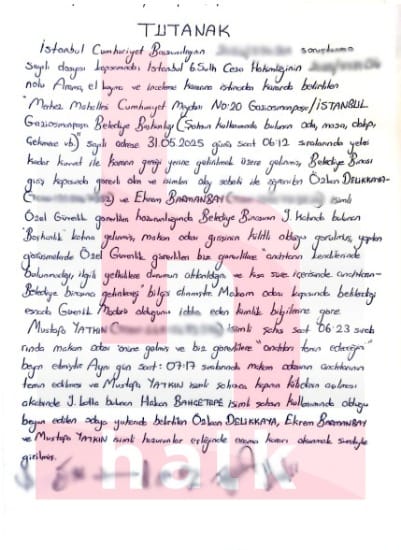 TUTANAK
İstanbul Cumhuriyet Başsavcılığının soruşturma
sayılı dosyası kapsamında İstanbul 6.Sulh Ceza Hakimliğinin
nolu Arama, el koyma ve inceleme kararına istinaden kararda belirtilen
"Merkez Mahallesi Cumhuriyet Meydanı No:20 Gaziosmanpaşa/İSTANBUL
Gaziosmanpaşa Belediye Başkanlığı (Şahsın kullanımında bulunan oda, masa, dolap,
Çekmece vb.)" sayılı adrese 31.05.2025 günü saat 06:12 sıralarında yeteri
kadar kuvvet ile kararın gereği yerine getirilmek üzere gelinmiş, Belediye Binası
giriş kapısında görevli olan ve isimleri olay sebebi ile öğrenilen Özkan DELİKKAYA-
ve Ekrem BARMANBAY isimli
Özel Güvenlik görevlileri huzurunda Belediye Binasının 1. Katında bulunan
"Başkanlık" katına gelinmiş, makam odası girişinin kilitli olduğu görülmüş, yapılan
görüşmelerde Özel Güvenlik görevlileri biz görevlilere "anahtarın kendilerinde
bulunmadığı, ilgili yetkililere durumun aktarıldığını ve kısa süre içerisinde anahtarın-
Belediye binasına getirileceği" bilgisi alınmıştır. Makam odası kapısında beklendiği
esnada Güvenlik Müdürü olduğunu iddia eden kimlik bilgilerine göre
Mustafa YATKIN isimli şahıs saat 06:23 sırala
rında makam odası önüne gelmiş ve biz görevlilere "anahtarı temin edeceğini"
beyan etmiştir. Aynı gün saat: 07:17 sıralarında makam odasının anahtarının
temin edilmesi ve Mustafa YATKIN isimli şahısca kapının kilidinin açılması
akabinde 1. katta bulunan Hakan BAHÇETEPE isimli şahsın kullanımında olduğu
beyan edilen odaya yukarıda belirtilen Özkan DELİKKAYA, Ekrem BARMANBAY
ve Mustafa YATKIN isimli hazirunlar eşliğinde arama kararı okunmak suretiyle
girilmiş.
halk